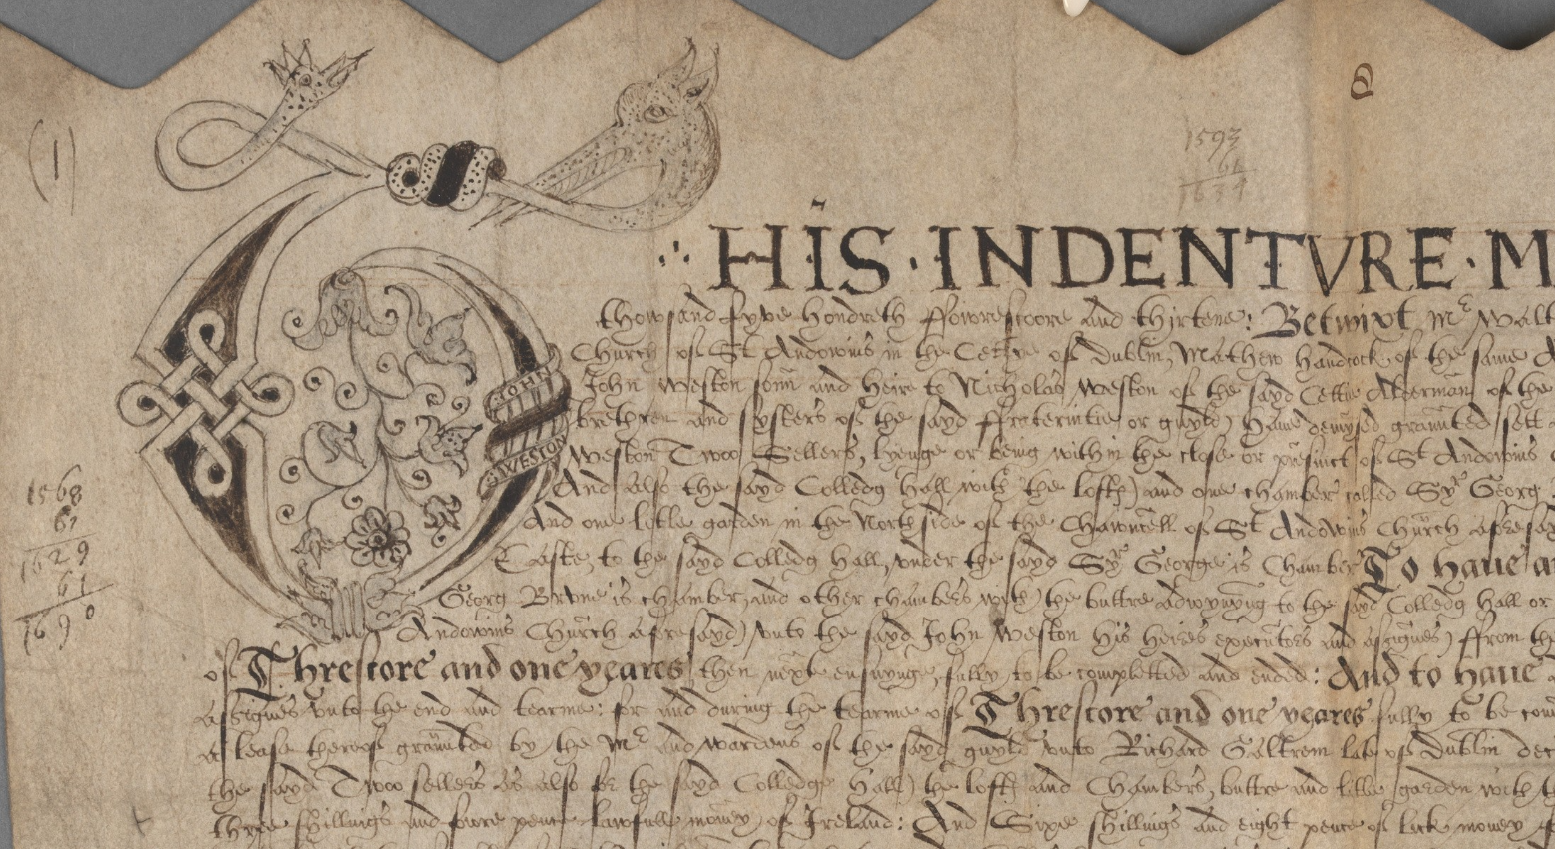 (1)
1593
61
HIS · INDENTVRE · M
thowsand fyve hondreth ffowrescoore and thirtene: Betwixt Mr Walt
Church of St Andowins in the Cettye of Dublin, Mathew Handcock of the same A
JOHN
John Weston sonn and Heire to Nicholas Weston of the sayd Cettie Alderman of the
brethren and systers of the sayd ffraternitie or guyld) Have demysed graunted sett
WESTON
Weston Twoo Sellers, lyenge or being within the close or presinct of St Andowins
And also the sayd Colledg Hall with the lofth) and one chamber called Syr Georg
1568
61
1629
61
1690
And one litle garden in the North side of the Chauncell of St Andowins Church aforesay
Easte, to the sayd Colledg Hall, vnder the sayd Syr George is Chamber To haue a
Georg Browne is chamber, and other chambers with) the buttre adioynyng to the sayd Colledg Hall or
Andowins Church aforesayd) vnto the sayd John Weston his heires executors and assignes) ffrom th
of Threscore and one yeares then next ensuynge, fully to be completted and ended: And to haue
assignes vnto the end and tearme: for and during the tearme of Threscore and one yeares fully to be com
a lease thereof graunted by the Mr and wardens of the sayd guyld vnto Richard Galtrom late of Dublin dec
the sayd Twoo sellers as also for the sayd Colledge Hall) the lofth and Chambers, buttre and litle garden with th
three shillings and fowre pence lawfull money of Ireland: And Sixe shillings and eight pence of lick money